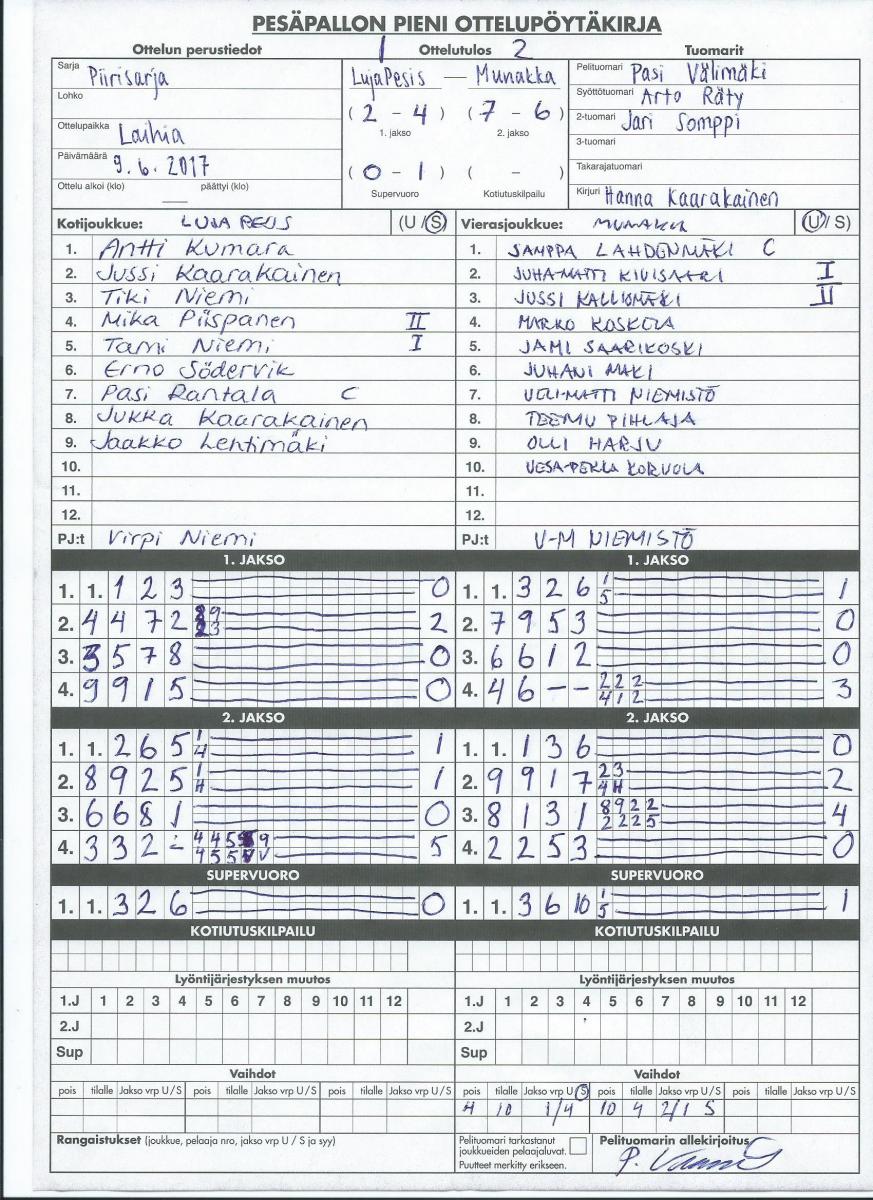 PESÄPALLON PIENI OTTELUPÖYTÄKIRJA
Ottelun perustiedot 1 Ottelutulos 2 Tuomarit
Sarja Piirisarja
LujaPesis — Munakka
Pelituomari Pasi Välimäki
Lohko
Syöttötuomari Arto Räty
(2 - 4) (7 - 6)
1. jakso 2. jakso
Ottelupaikka Laihia
2-tuomari Jari Somppi
3-tuomari
Päivämäärä 9.6.2017
(0 - 1) ( - )
Takarajatuomari
Ottelu alkoi (klo) — päättyi (klo)
Supervuoro Kotiutuskilpailu
Kirjuri Hanna Kaarakainen
Kotijoukkue: LUJA PESIS (U/S) Vierasjoukkue: MUNAKKA (U/S)
1. Antti Kumara 1. SAMPPA LAHDENMÄKI C
2. Jussi Kaarakainen 2. JUHA-MATTI KIVISAARI I
3. Tiki Niemi 3. JUSSI KALLIOMÄKI II
4. Mika Piispanen II 4. MARKO KOSKELA
5. Tami Niemi I 5. JAMI SAARIKOSKI
6. Erno Södervik 6. JUHANI MÄKI
7. Pasi Rantala C 7. VELI-MATTI NIEMISTÖ
8. Jukka Kaarakainen 8. TEEMU PIHLAJA
9. Jaakko Lehtimäki 9. OLLI HARJU
10. 10. VESA-PEKKA KORVOLA
11. 11.
12. 12.
PJ:t Virpi Niemi PJ:t V-M NIEMISTÖ
1. JAKSO 1. JAKSO
1. 1. 1 2 3 0 1. 1. 3 2 6 1 5 1
2. 4 4 7 2 2 2. 7 9 5 3 0
3. 3 5 7 8 0 3. 6 6 1 2 0
4. 9 9 1 5 0 4. 4 6 - - 2 2 2 4 1 2 3
2. JAKSO 2. JAKSO
1. 1. 2 6 5 1 4 1 1. 1. 1 3 6 0
2. 8 9 2 5 1 H 1 2. 9 9 1 7 2 3 4 H 2
3. 6 6 8 1 0 3. 8 1 3 1 8 9 2 2 2 2 2 5 4
4. 3 3 2 - 5 4. 2 2 5 3 0
SUPERVUORO SUPERVUORO
1. 1. 3 2 6 0 1. 1. 3 6 10 1 5 1
KOTIUTUSKILPAILU KOTIUTUSKILPAILU
Lyöntijärjestyksen muutos Lyöntijärjestyksen muutos
1.J 1 2 3 4 5 6 7 8 9 10 11 12 1.J 1 2 3 4 5 6 7 8 9 10 11 12
2.J 2.J
Sup Sup
Vaihdot Vaihdot
pois tilalle Jakso vrp U/S pois tilalle Jakso vrp U/S pois tilalle Jakso vrp U/S pois tilalle Jakso vrp U/S pois tilalle Jakso vrp U/S pois tilalle Jakso vrp U/S
4 10 1/4 10 4 2/1 S
Rangaistukset (joukkue, pelaaja nro, jakso vrp U/S ja syy)
Pelituomari tarkastanut
joukkueiden pelaajaluvat.
Puutteet merkitty erikseen.
Pelituomarin allekirjoitus